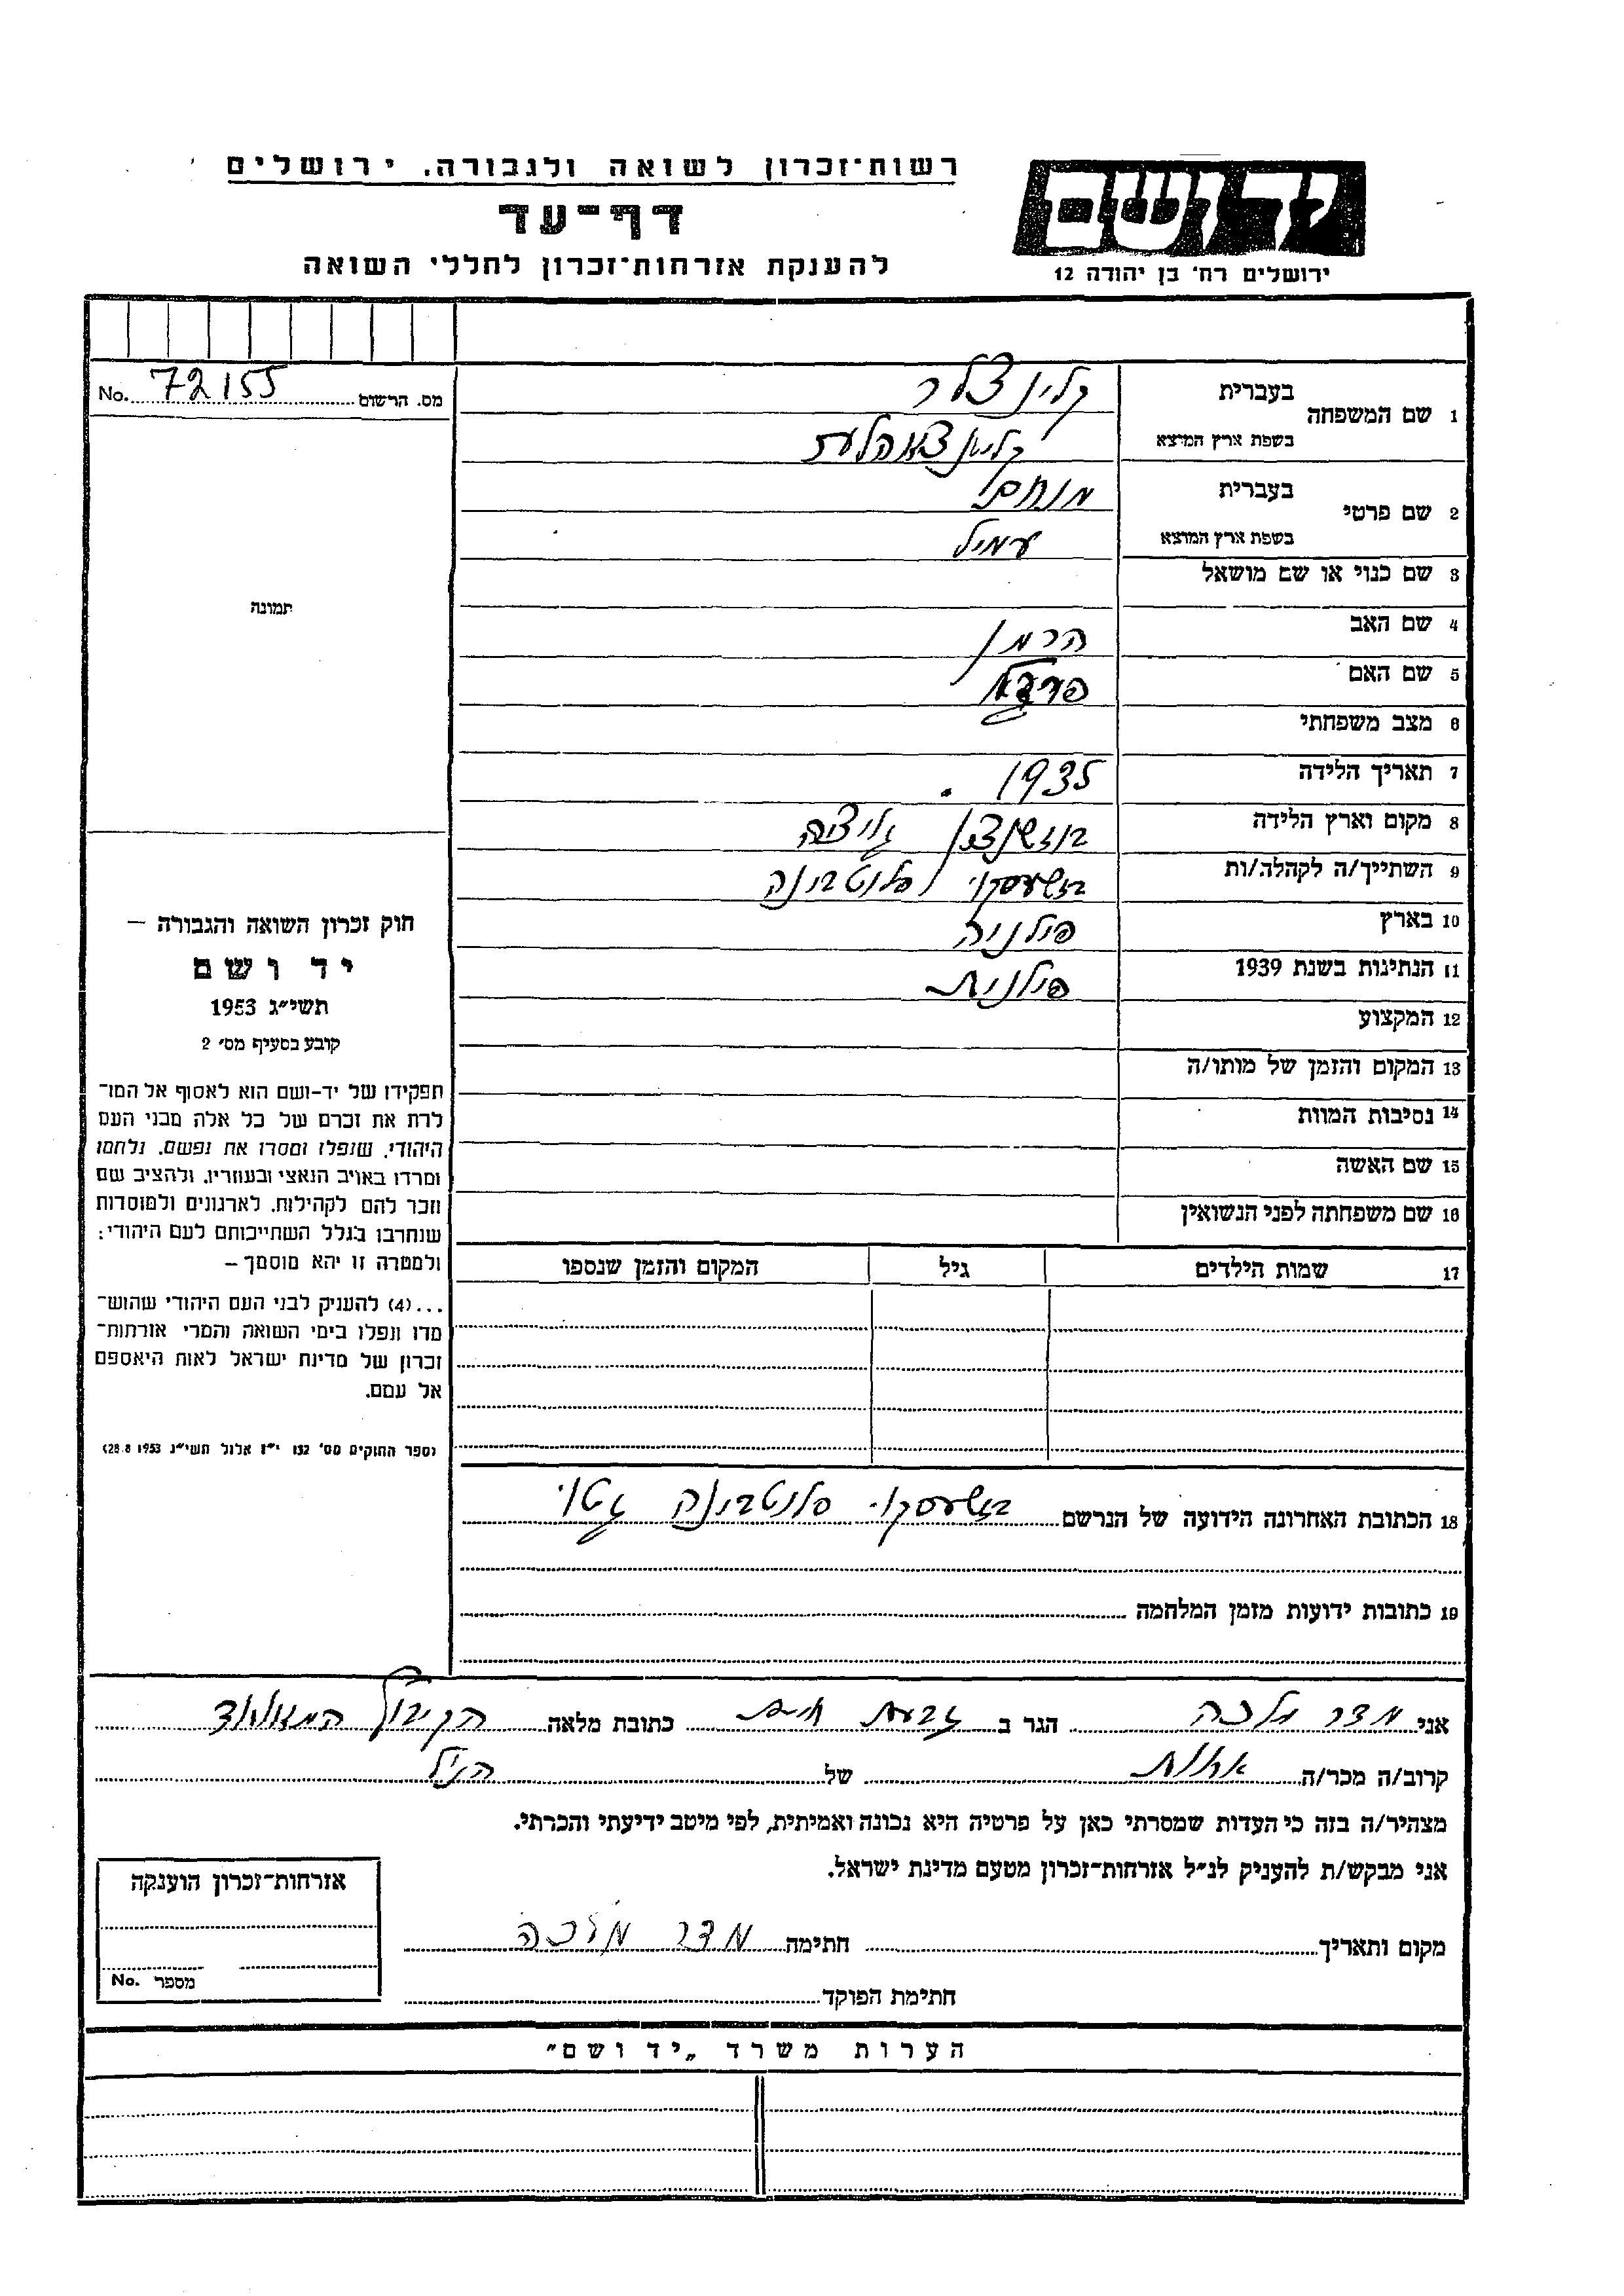 רשות־זכרון לשואה ולגבורה, ירושלים
דף־עד
להענקת אזרחות־זכרון לחללי השואה
יד ושם
ירושלים רח' בן יהודה 12
מס. הרשום 72155 No.
1 שם המשפחה
בעברית קלינצלר
בשפת ארץ המוצא
2 שם פרטי
בעברית מנחם
בשפת ארץ המוצא עמיל
3 שם כנוי או שם מושאל
4 שם האב הרמן
5 שם האם
6 מצב משפחתי
7 תאריך הלידה 1935.
8 מקום וארץ הלידה
9 השתייך/ה לקהלה/ות
10 בארץ פולניה
11 הנתינות בשנת 1939 פולנית
12 המקצוע
13 המקום והזמן של מותו/ה
14 נסיבות המוות
15 שם האשה
16 שם משפחתה לפני הנשואין
17 שמות הילדים גיל המקום והזמן שנספו
תמונה
חוק זכרון השואה והגבורה –
יד ושם
תשי״ג 1953
קובע בסעיף מס' 2
תפקידו של יד-ושם הוא לאסוף אל המו־
לדת את זכרם של כל אלה מבני העם
היהודי, שנפלו ומסרו את נפשם, נלחמו
ומרדו באויב הנאצי ובעוזריו, ולהציב שם
וזכר להם לקהילות, לארגונים ולמוסדות
שנחרבו בגלל השתייכותם לעם היהודי:
ולמטרה זו יהא מוסמך –
...(4) להעניק לבני העם היהודי שהוש־
מדו ונפלו בימי השואה והמרי אזרחות־
זכרון של מדינת ישראל לאות היאספם
אל עמם.
(ספר החוקים מס' 132 י״ז אלול תשי״ג 28.8.1953)
18 הכתובת האחרונה הידועה של הנרשם גטו
19 כתובות ידועות מזמן המלחמה
אני מדר מלכה הגר ב גבעת כתובת מלאה
קרוב/ה מכר/ה אחות של הנ״ל
מצהיר/ה בזה כי העדות שמסרתי כאן על פרטיה היא נכונה ואמיתית, לפי מיטב ידיעתי והכרתי.
אני מבקש/ת להעניק לנ״ל אזרחות־זכרון מטעם מדינת ישראל.
מקום ותאריך חתימה מדר מלכה
חתימת הפוקד
אזרחות־זכרון הוענקה
מספר No.
הערות משרד „יד ושם״